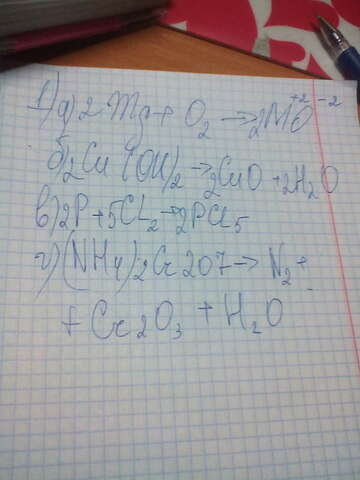 1) а) 2 Mg + O₂ → 2MO⁺² ⁻²
б) 2Cu (OH)₂ → 2CuO + 2H₂O
в) 2P + 5CL₂ → 2PCl₅
г) (NH₄)₂Cr2O7 → N₂ +
+ Cr₂O₃ + H₂O